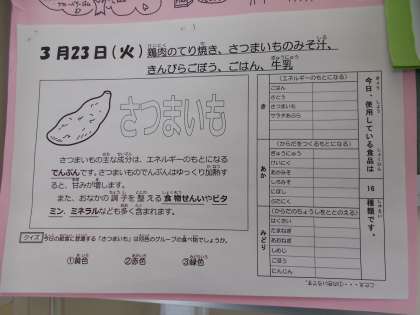 3月23日(火)鶏肉のてり焼き、さつまいものみそ汁、
きんぴらごぼう、ごはん、牛乳
さつまいも
さつまいもの主な成分は、エネルギーのもとになる
でんぷんです。さつまいものでんぷんはゆっくり加熱す
ると、甘みが増します。
また、おなかの調子を整える食物せんいやビタ
ミン、ミネラルなども多く含まれます。
クイズ 今日の給食に登場する「さつまいも」は何色のグループの食べ物でしょうか。
①黄色 ②赤色 ③緑色
今日、使用している食品は 16 種類です。
き
(エネルギーのもとになる)
ごはん
さとう
さつまいも
サラダあぶら
あか
(からだをつくるもとになる)
ぎゅうにゅう
けいにく
あぶらあげ
しろみそ
にぼし
みどり
(からだのちょうしをととのえる)
はくさい
たまねぎ
あおねぎ
しめじ
ごぼう
にんじん